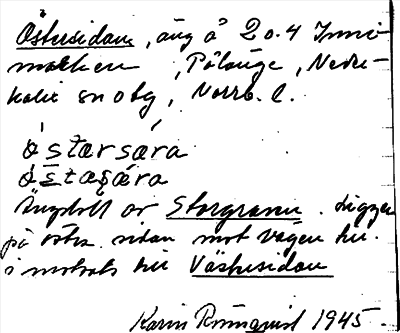 Östersidan, äng å 2 o. 4 Inni-
marken, Pålänge, Neder-
kalix sn o tg, Norrb. l.
östärsära
östäṣära
Ängskift av Storgrann. Ligger
på östra sidan mot vägen här.
i motsats till Västersidan
Karin Rönnqvist 1945